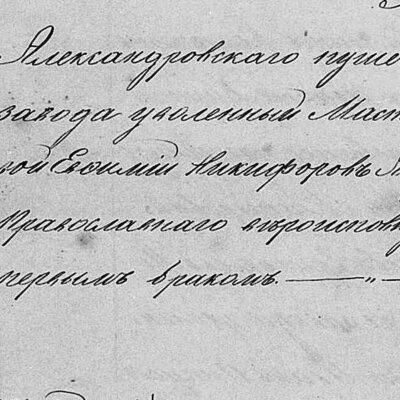 Александровскаго пуше
завода уволенный Маст
вой Евфимій Никифоровъ
Православнаго вѣроиспов
первымъ бракомъ. — „ —